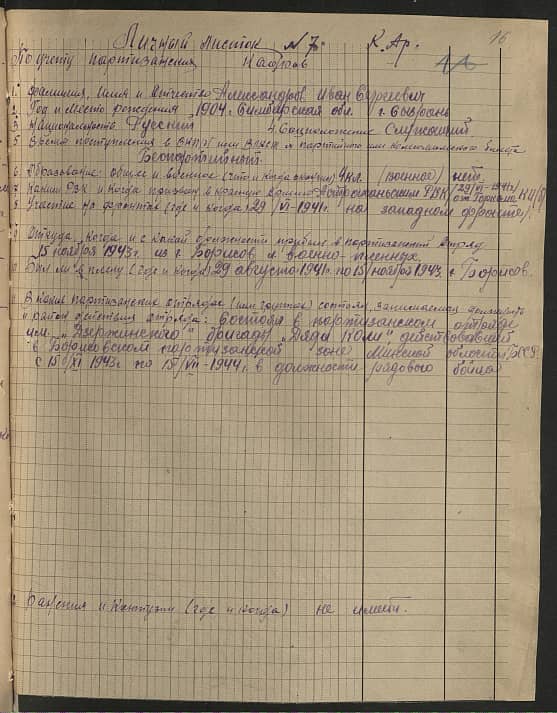 16
Личный листок № 7. К. Ар.
По учету партизанский кадров
1. Фамилия, имя и отчество Александров Иван Сергеевич
2. Год и место рождения 1904 г. Симбирской обл. г. Сызрань
3. Национальность Русский 4. Соцположение Служащий
5. Время поступления в ВКП(б) или ВЛКСМ № партийного или комсомольского билета
Беспартийный.
6. Образование: общее и военное (что и когда окончил) 4 кл. (военное) нет.
7. Каким РВК и когда призван в Красную Армию Астраханским РВК (29/VI-1941г.
8. Участие на фронтах (где и когда) 29/VI-1941г. на западном фронте
9. Откуда, когда и с какой должности прибыл в партизанский отряд
15 ноября 1943г. из г. Борисов военно-пленных.
10. Был ли в плену (где и когда) 29 августа 1941г. по 15/ноября 1943г. г. Борисов.
11. В каких партизанских отрядах (или группах) состоял, занимаемая должность
и район действия отряда: Состоял в партизанском отряде
им. "Дзержинского" бригады "Дяди Коли" действовавшей
в Борисовском партизанской зоне Минской области БССР
с 15/XI 1943г. по 15/VII-1944г. в должности рядового бойца
12. Ранения и контузии (где и когда) не имеет.